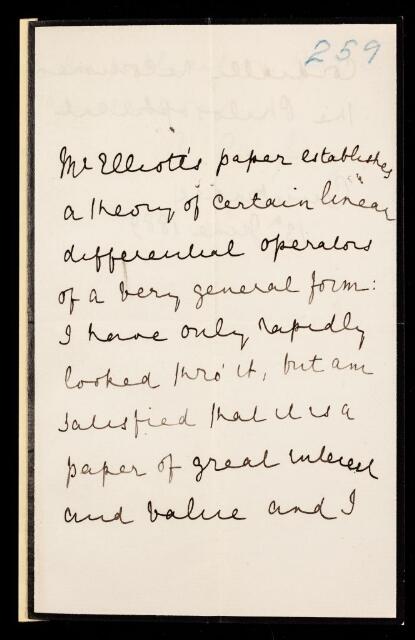 259
Mr Elliott's paper establishes
a theory of certain linear
differential operators
of a very general form:
I have only rapidly
looked thro' it, but am
satisfied that it is a
paper of great interest
and value and I